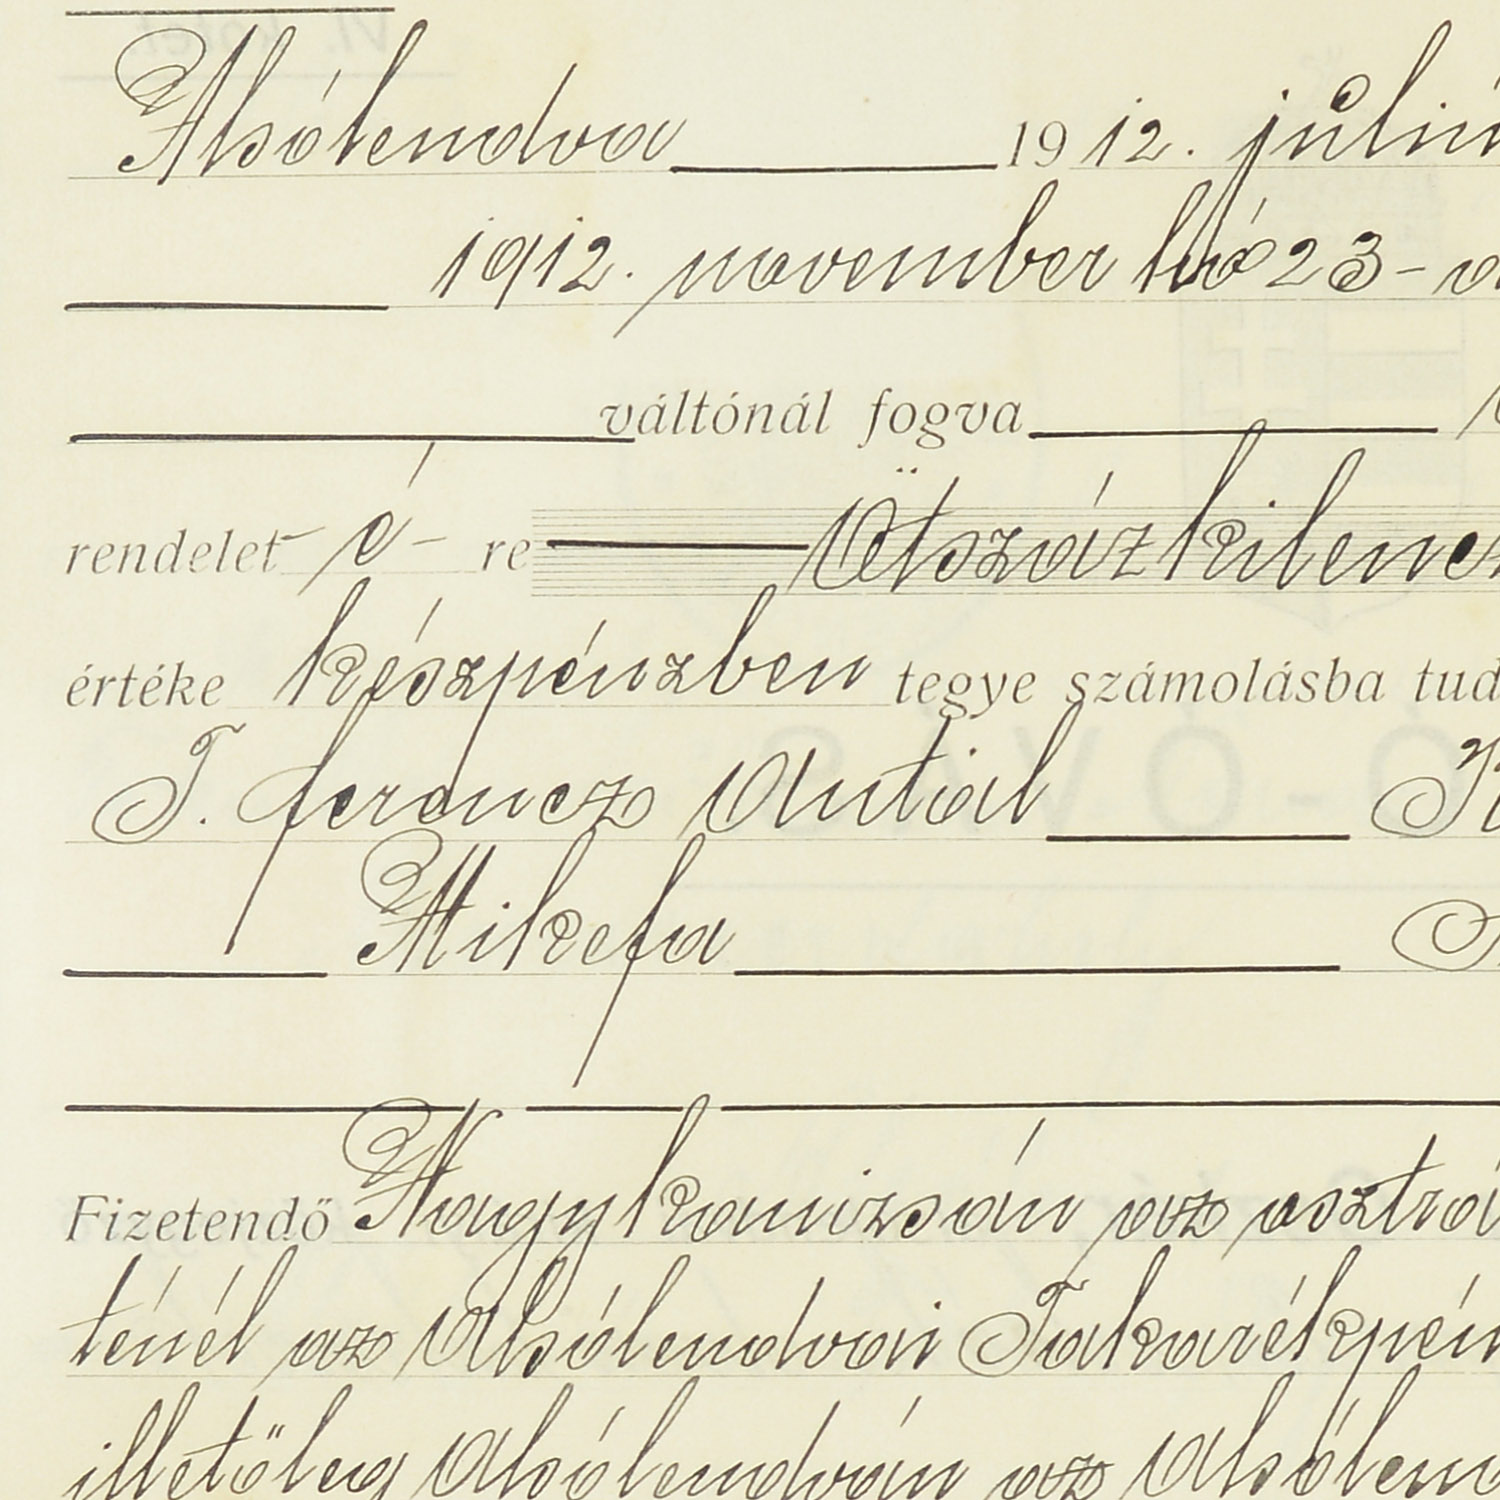 Alsólendva 1912. júliu
1912. november hó 23-
váltónál fogva
rendelet é - re Ötszázkilencz
értéke készpénzben tegye számolásba tud
T. Ferencz Antal
Mikefa
Fizetendő Nagykanizsán az osztrá
ténél az Alsólendvai Takarékpén
illetőleg Alsólendván az Alsólen